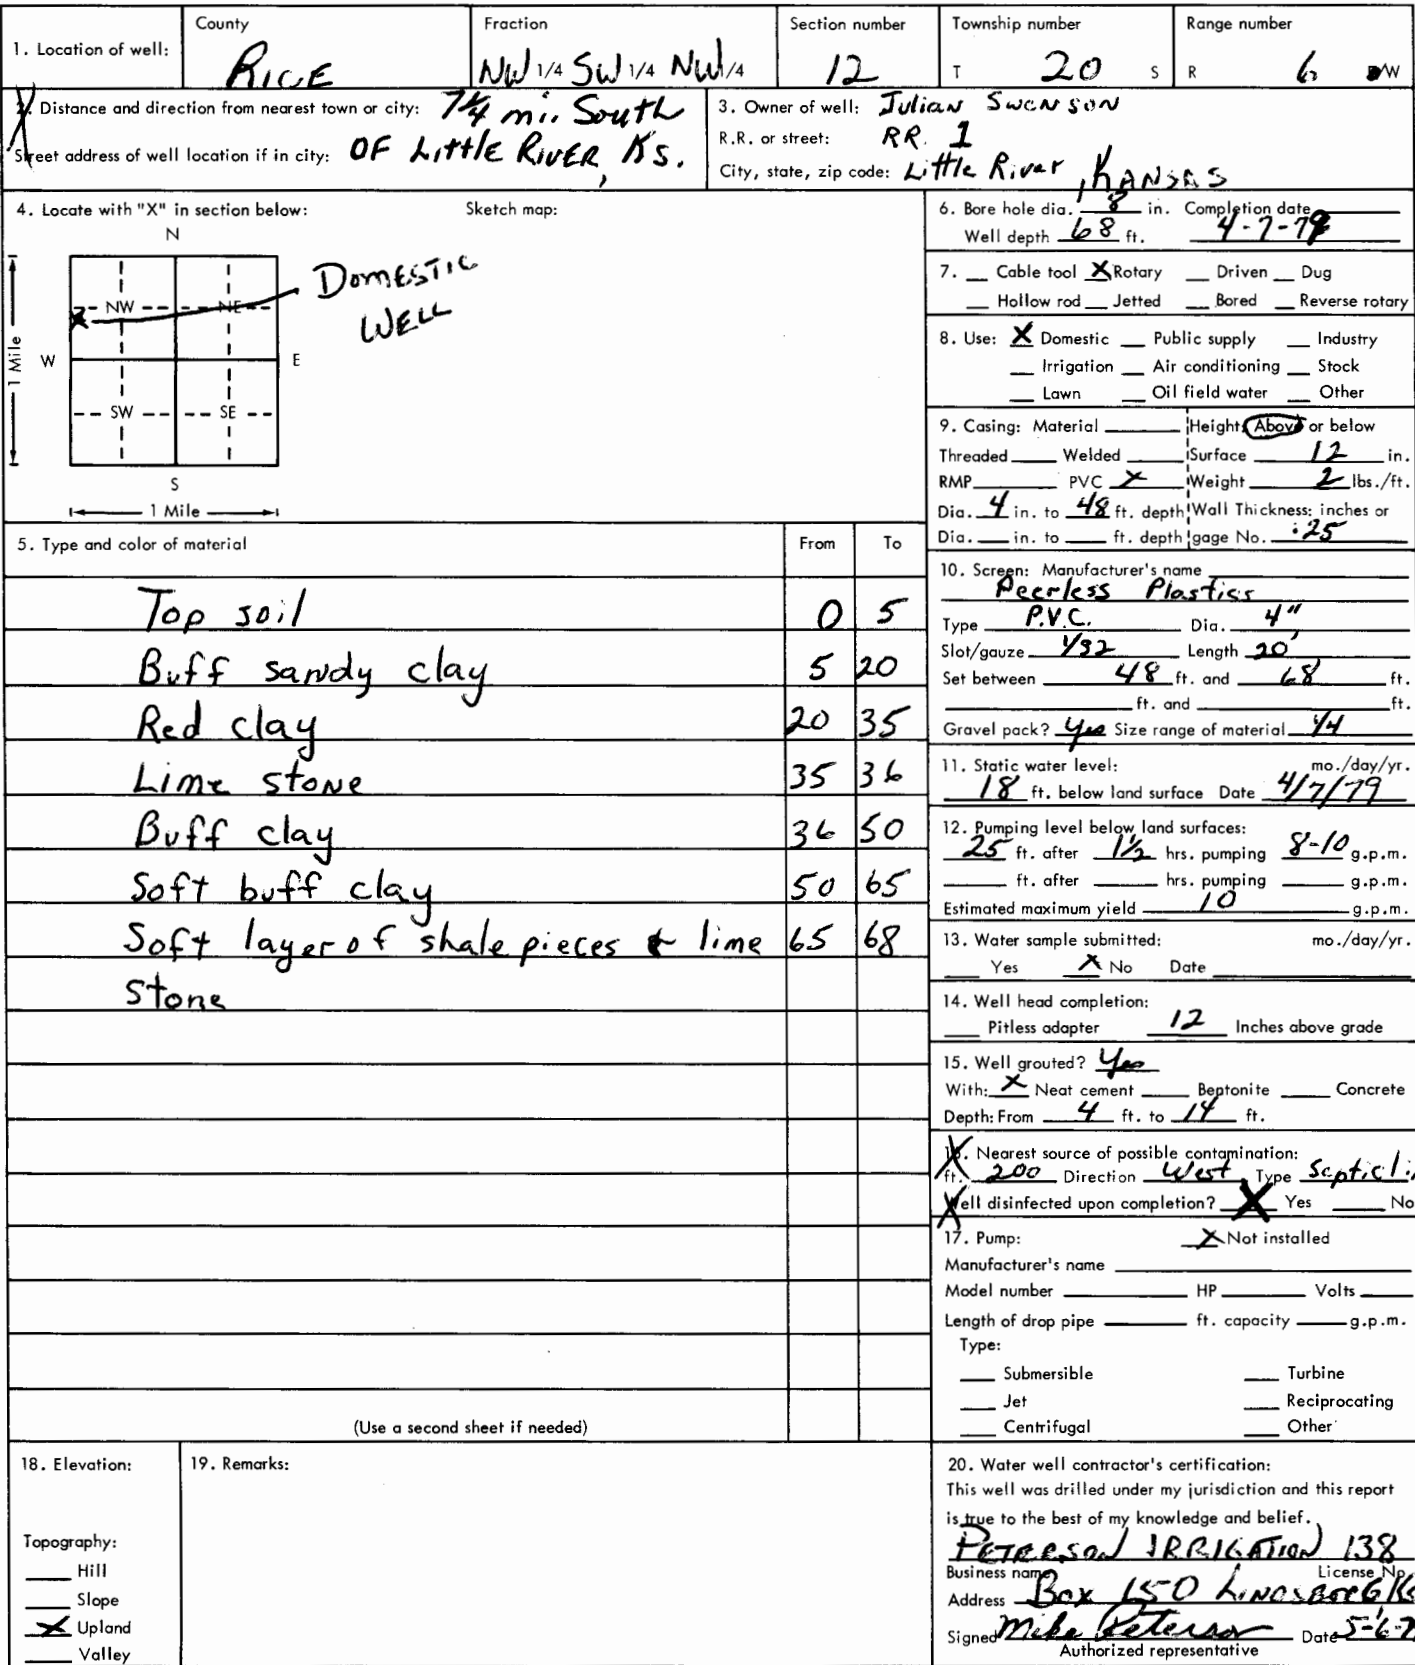 1. Location of well: County RICE Fraction NW 1/4 SW 1/4 NW 1/4 Section number 12 Township number T 20 S Range number R 6 W
2. Distance and direction from nearest town or city: 7 1/4 mi. South
Street address of well location if in city: OF Little RIVER, KS.
3. Owner of well: Julian Swenson
R.R. or street: RR. 1
City, state, zip code: Little River, KANSAS
4. Locate with "X" in section below: Sketch map:
N
NW NE
DOMESTIC
WELL
1 Mile W E
SW SE
S
1 Mile
5. Type and color of material From To
Top soil 0 5
Buff sandy clay 5 20
Red clay 20 35
Lime stone 35 36
Buff clay 36 50
Soft buff clay 50 65
Soft layer of shale pieces & lime 65 68
stone
(Use a second sheet if needed)
6. Bore hole dia. 8 in. Completion date
Well depth 68 ft. 4-7-79
7. Cable tool X Rotary Driven Dug
Hollow rod Jetted Bored Reverse rotary
8. Use: X Domestic Public supply Industry
Irrigation Air conditioning Stock
Lawn Oil field water Other
9. Casing: Material Height: Above or below
Threaded Welded Surface 12 in.
RMP PVC X Weight 2 lbs./ft.
Dia. 4 in. to 48 ft. depth Wall Thickness: inches or
Dia. in. to ft. depth gage No. .25
10. Screen: Manufacturer's name
Peerless Plastics
Type P.V.C. Dia. 4"
Slot/gauze 1/32 Length 20'
Set between 48 ft. and 68 ft.
ft. and ft.
Gravel pack? Yes Size range of material 1/4
11. Static water level: mo./day/yr.
18 ft. below land surface Date 4/7/79
12. Pumping level below land surfaces:
25 ft. after 1 1/2 hrs. pumping 8-10 g.p.m.
ft. after hrs. pumping g.p.m.
Estimated maximum yield 10 g.p.m.
13. Water sample submitted: mo./day/yr.
Yes X No Date
14. Well head completion:
Pitless adapter 12 Inches above grade
15. Well grouted? Yes
With: X Neat cement Bentonite Concrete
Depth: From 4 ft. to 14 ft.
16. Nearest source of possible contamination:
ft. 200 Direction West Type Septic
Well disinfected upon completion? X Yes No
17. Pump: X Not installed
Manufacturer's name
Model number HP Volts
Length of drop pipe ft. capacity g.p.m.
Type:
Submersible Turbine
Jet Reciprocating
Centrifugal Other
18. Elevation:
Topography:
Hill
Slope
X Upland
Valley
19. Remarks:
20. Water well contractor's certification:
This well was drilled under my jurisdiction and this report
is true to the best of my knowledge and belief.
PETERSON IRRIGATION 138
Business name License No.
Address Box 150 LINDSBORG Ks
Signed Mike Peterson Date 5-6-7
Authorized representative